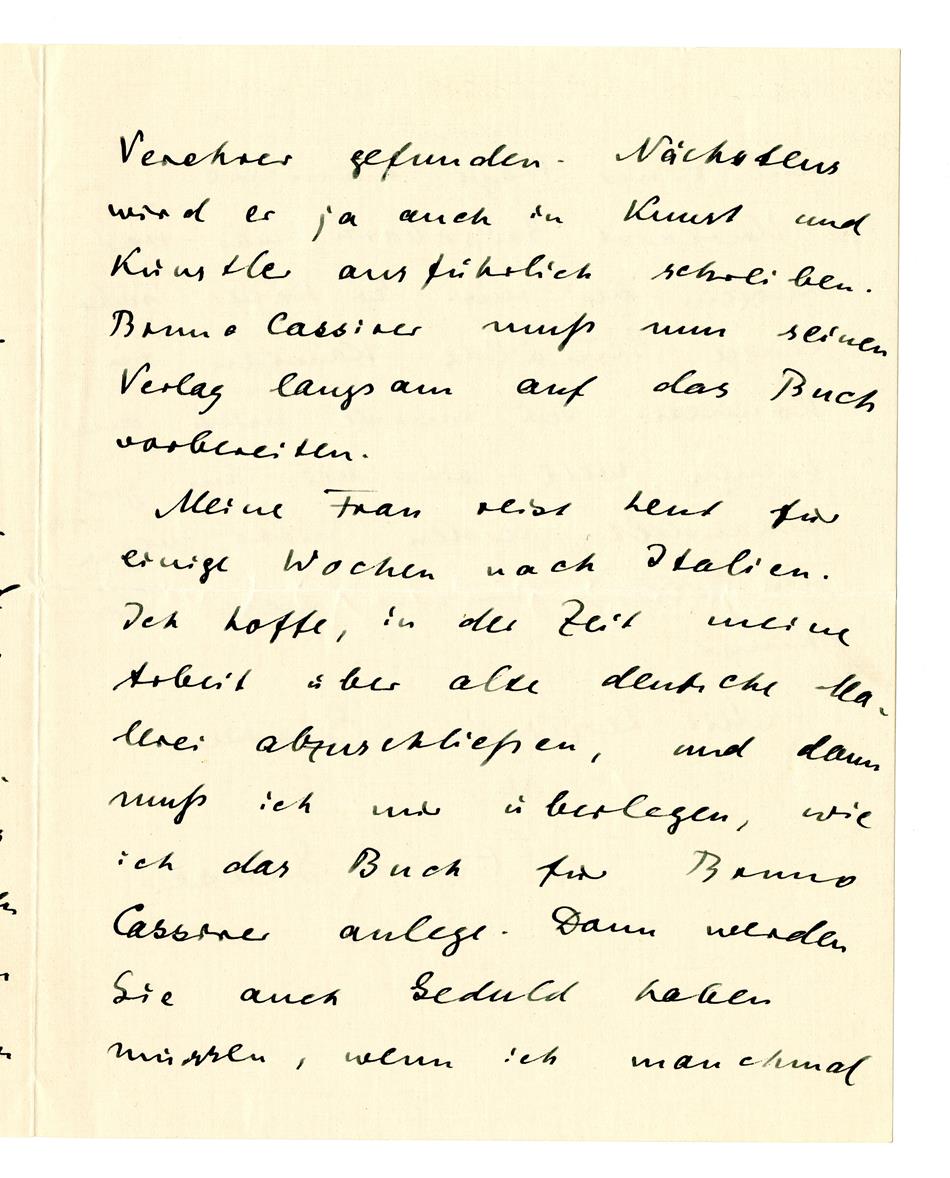 Verehrer gefunden. Nächstens
wird er ja auch in Kunst und
Künstler ausführlich schreiben.
Bruno Cassirer muß nun seinen
Verlag langsam auf das Buch
vorbereiten.
Meine Frau reist heut für
einige Wochen nach Italien.
Ich hoffe, in der Zeit meine
Arbeit über alte deutsche Ma-
lerei abzuschließen, und dann
muß ich mir überlegen, wie
ich das Buch für Bruno
Cassirer anlege. Dann werden
Sie auch Geduld haben
müssen, wenn ich manchmal